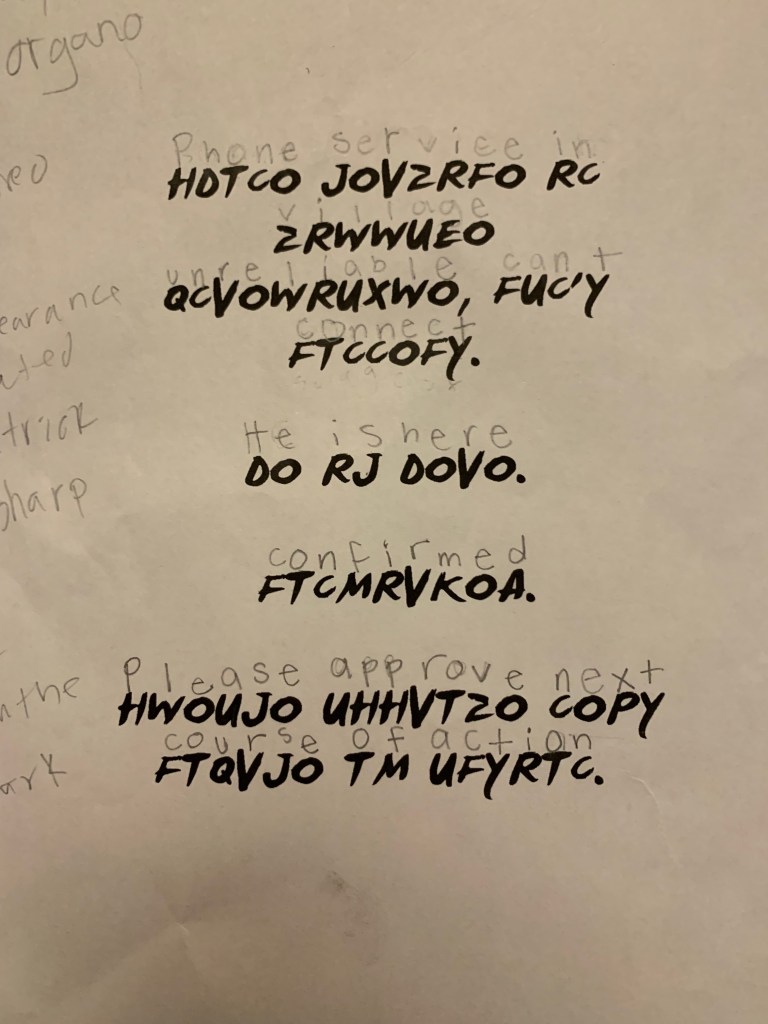 organo
Phone service in
HDTCO JOVZRFO RC
village
ZRWWUEO
unreliable can't
QCVOWRUXWO, FUC'Y
connect
FTCCOFY.
earance
ated
trick
He is here
DO RJ DOVO.
sharp
confirmed
FTCMRVKOA.
Please approve next
HWOUJO UHHVTZO COPY
course of action
FTQVJO TM UFYRTC.
ark